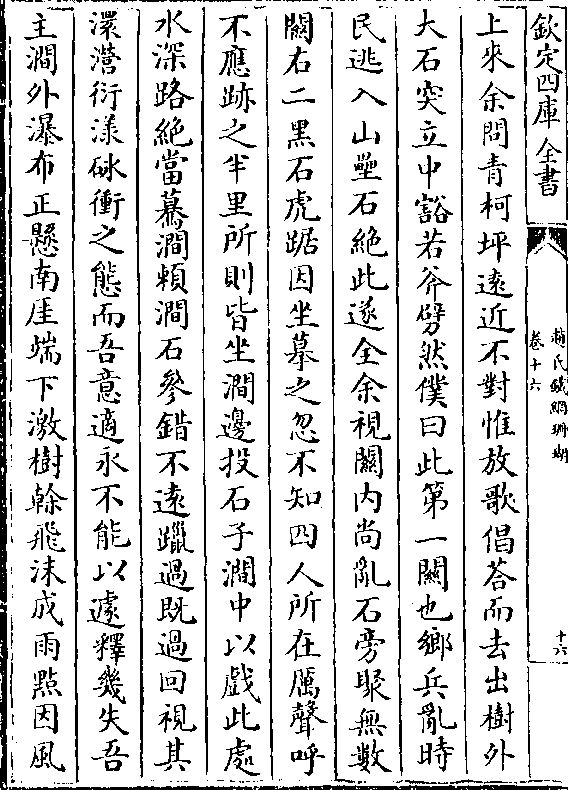 欽定四庫全書
趙氏鐵網珊瑚
卷十六
十六
上來余問青柯坪遠近不對惟放歌倡荅而去出樹外
大石突立中豁若斧劈然僕曰此第一關也鄉兵亂時
民逃入山壘石絶此遂全余視關内尚亂石旁聚無數
關右二黑石虎踞因坐摹之忽不知四人所在厲聲呼
不應跡之半里所則皆坐澗邊投石子澗中以戲此處
水深路絶當驀澗頼澗石參錯不遠躐過既過回視其
濴瀯衍漾砯衝之態而吾意適永不能以遽釋幾失吾
主澗外瀑布正懸南厓端下激樹榦飛沫成雨點因風